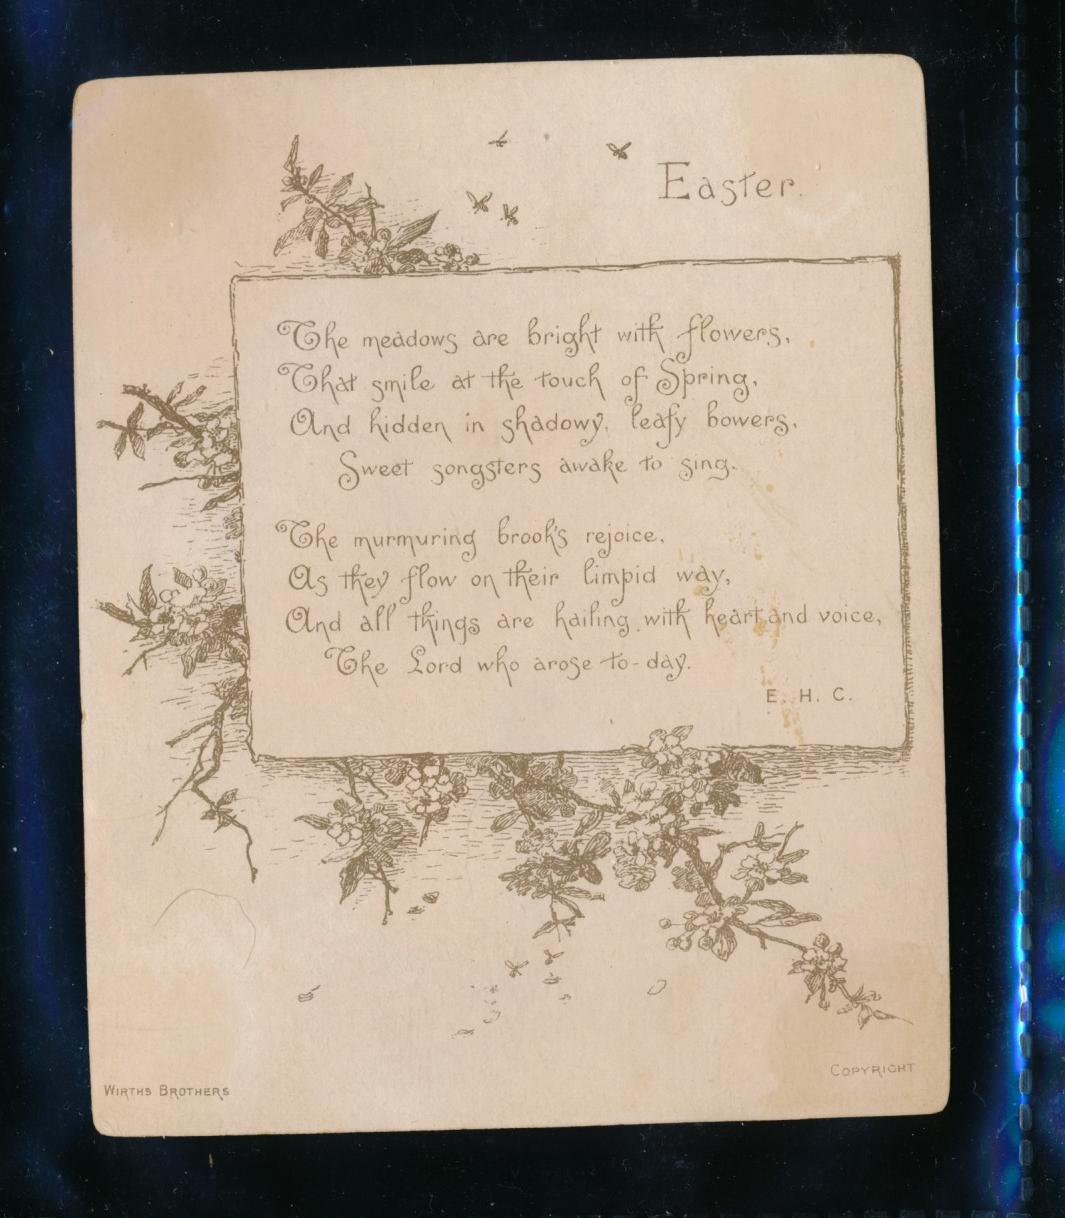 Easter.
The meadows are bright with flowers,
That smile at the touch of Spring,
And hidden in shadowy, leafy bowers,
Sweet songsters awake to sing.
The murmuring brooks rejoice,
As they flow on their limpid way,
And all things are hailing, with heart and voice,
The Lord who arose to-day.
E. H. C.
WIRTHS BROTHERS
COPYRIGHT